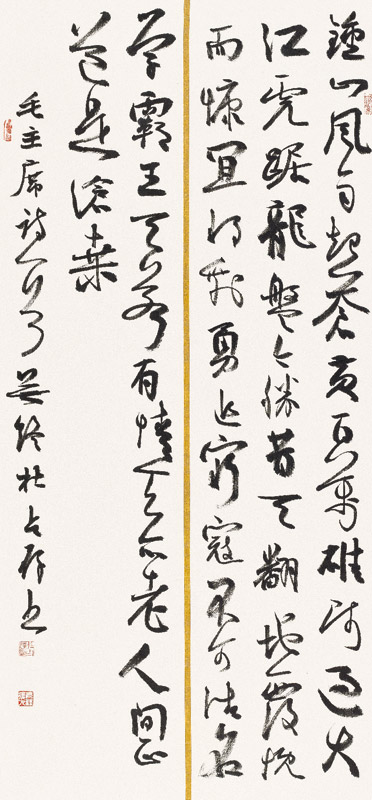 鍾山風雨起蒼黄百萬雄师過大
江虎踞龍盤今勝昔天翻地覆慨
而慷宜将剩勇追窮寇不可沽名
学霸王天若有情天亦老人间正
道是滄桑
毛主席诗一首